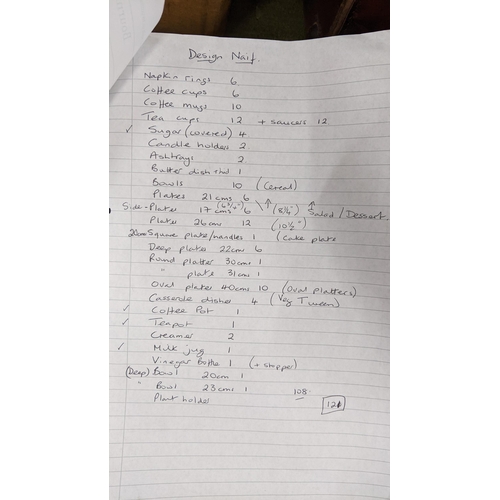 Design Naif.
Napkin rings 6
Coffee cups 6
Coffee mugs 10
Tea cups 12 + saucers 12
✓ Sugar (covered) 4
Candle holders 2
Ashtrays 2
Butter dish + lid 1
Bowls 10 (Cereal)
Plates 21 cms 6 ↑ (8¼") ↑ Salad / Dessert
Side - Plates 17 cms (6¾") 6
Plates 26 cms 12 (10½")
20cm Square plate/handles 1 (cake plate
Deep plates 22cms 6
Round platter 30cms 1
" plate 31cms 1
Oval plates 40cms 10 (Oval platters)
Casserole dishes 4 (Veg Tureen)
✓ Coffee Pot 1
✓ Teapot 1
Creamer 2
✓ Milk jug 1
Vinegar Bottle 1 (+ stopper)
(Deep) Bowl 20cm 1
" Bowl 23cms 1 108
Plant holder